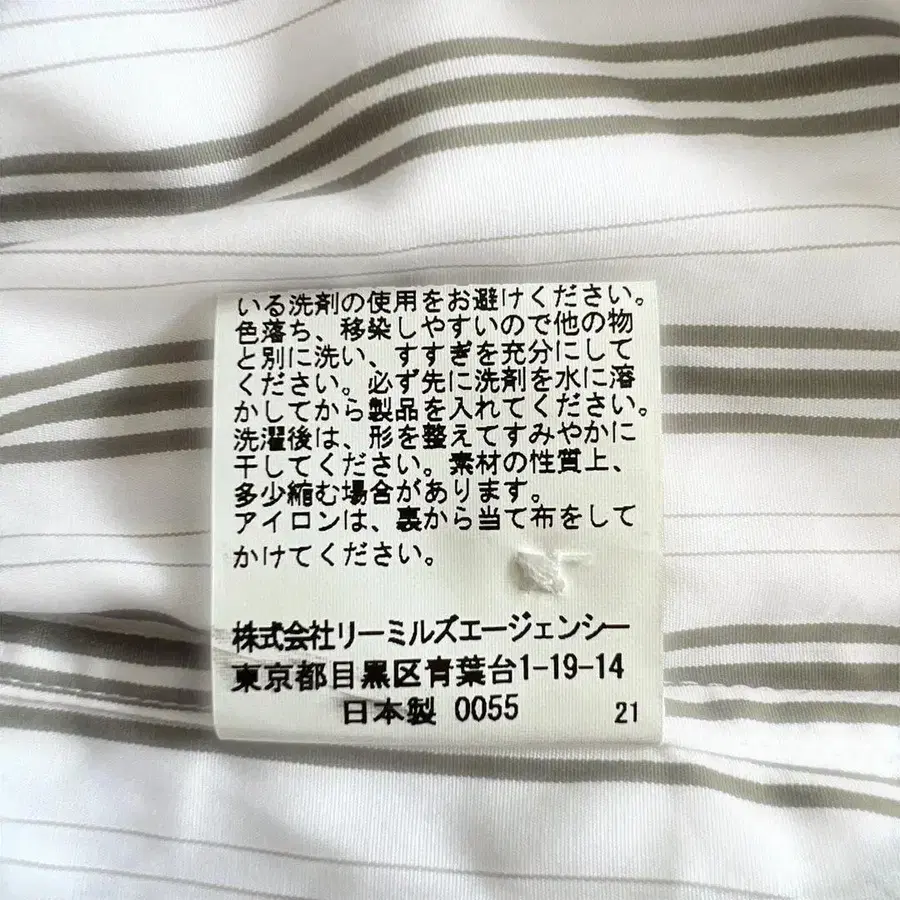 いる洗剤の使用をお避けください。
色落ち、移染しやすいので他の物
と別に洗い、すすぎを充分にして
ください。必ず先に洗剤を水に溶
かしてから製品を入れてください。
洗濯後は、形を整えてすみやかに
干してください。素材の性質上、
多少縮む場合があります。
アイロンは、裏から当て布をして
かけてください。
株式会社リーミルズエージェンシー
東京都目黒区青葉台1-19-14
日本製 0055 21